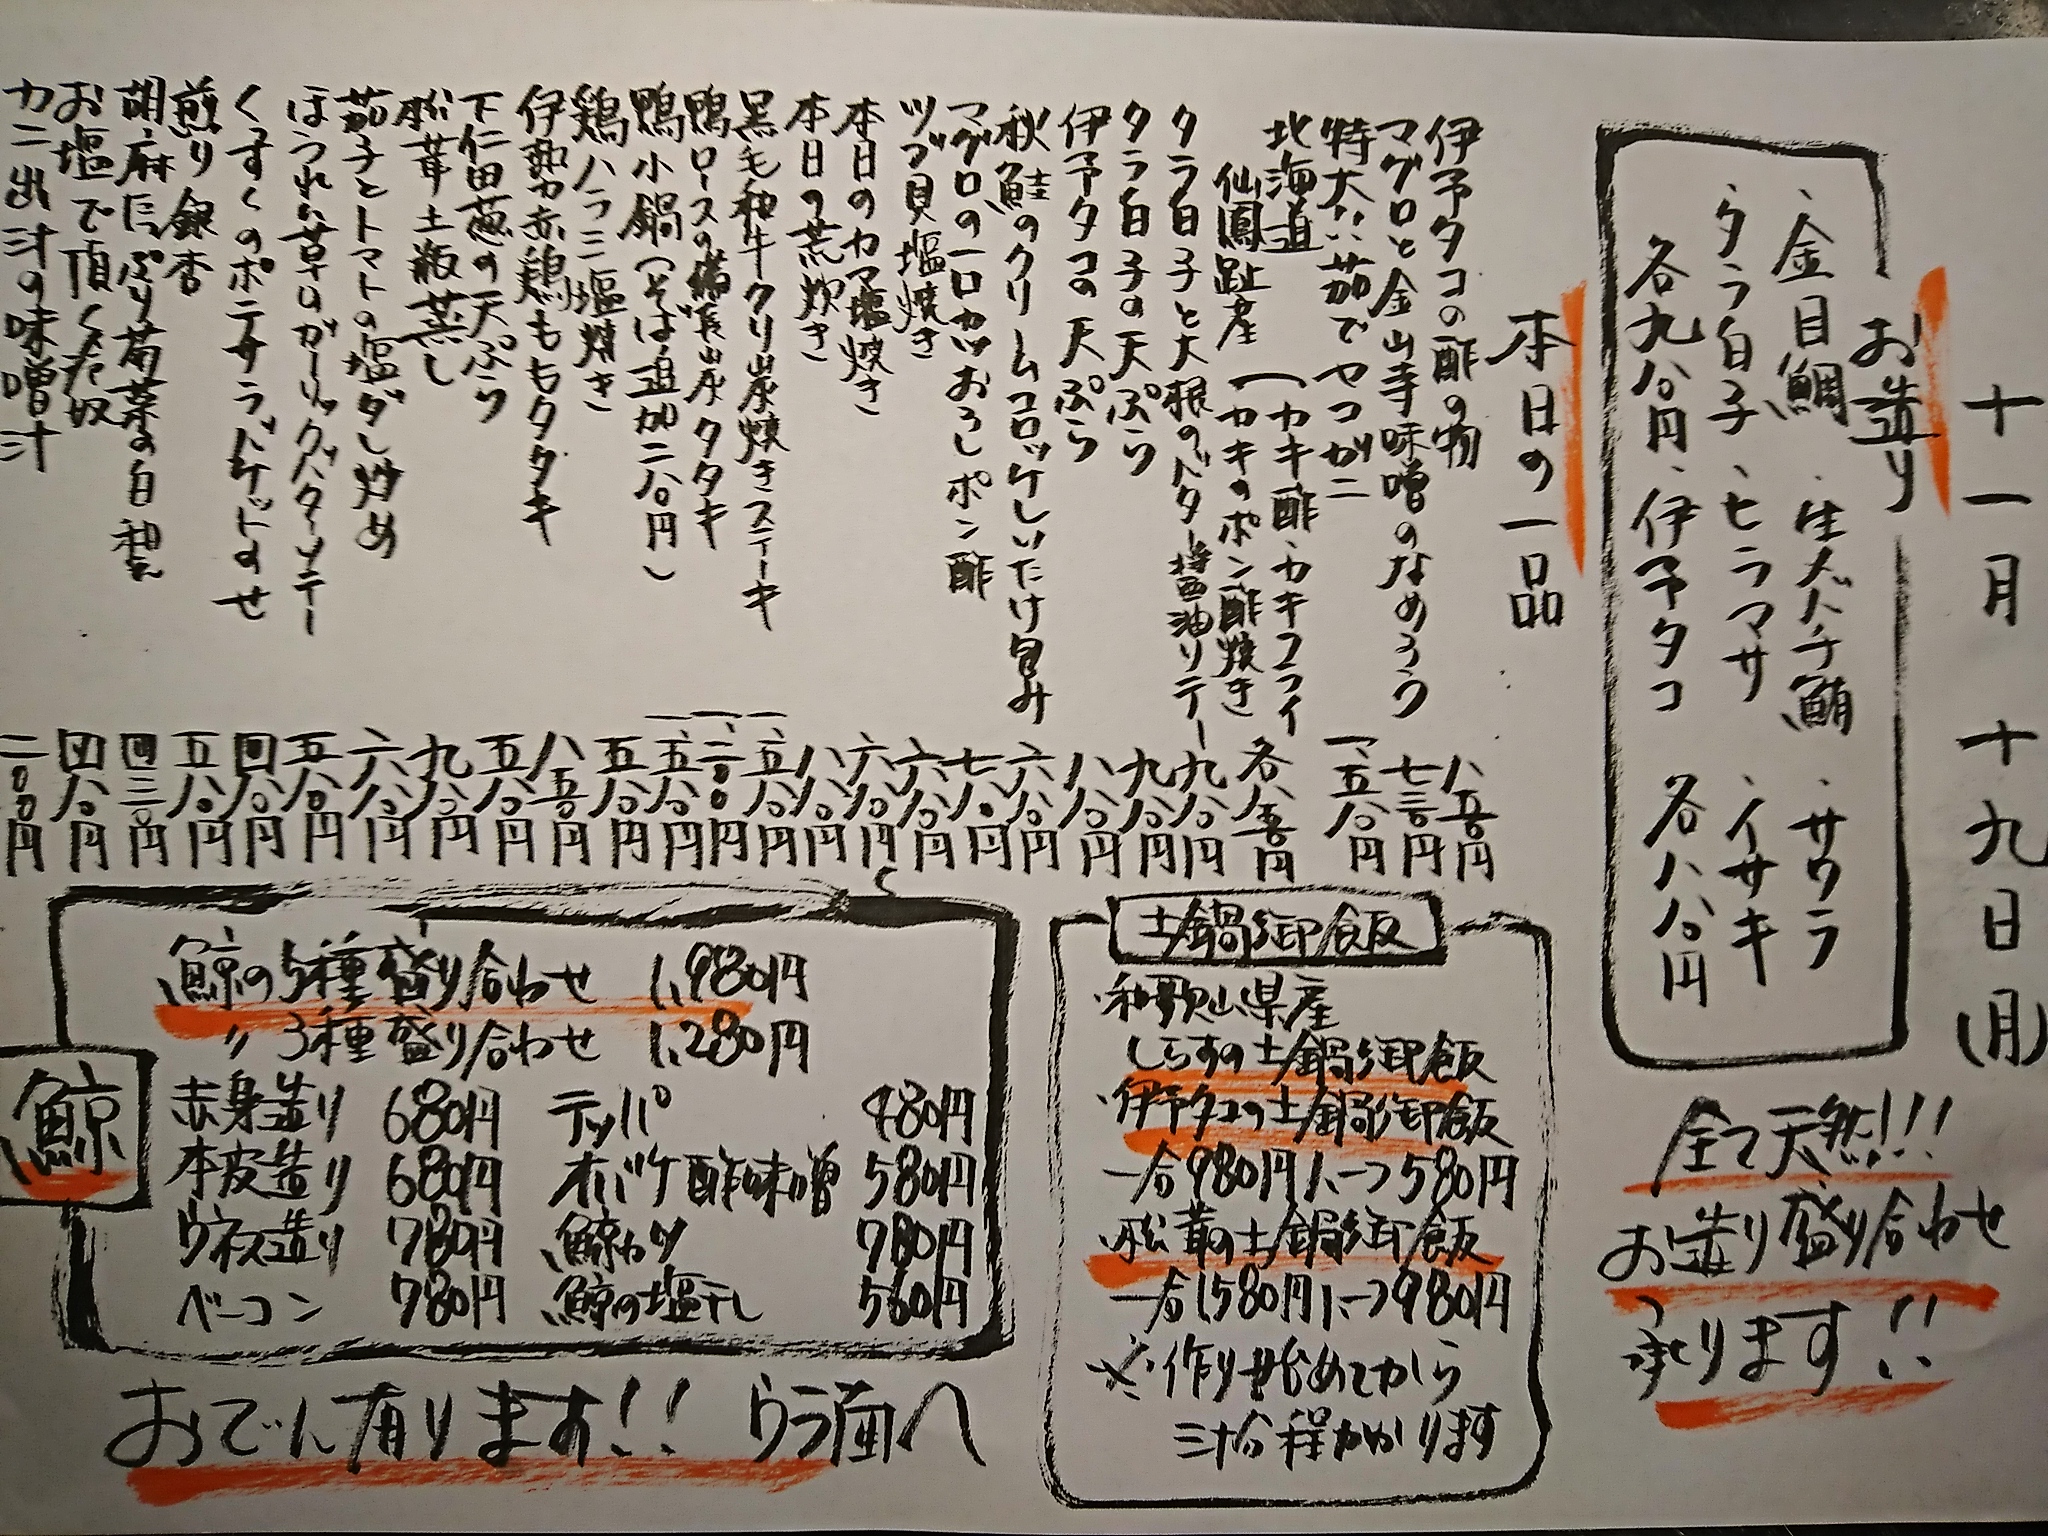 十一月 十九日(月)
お造り
・金目鯛 ・生メバチ鮪 ・サワラ
・タラ白子 ・ヒラマサ ・イサキ
各九八〇円 ・伊予タコ 各八八〇円
全て天然!!!
お造り盛り合わせ
承ります!!
本日の一品
伊予タコの酢の物 八五〇円
マグロと金山寺味噌のなめろう 七三〇円
特大!!茹でヤコガニ 一、五八〇円
北海道
仙鳳趾産
(カキ酢・カキフライ
(カキのポン酢焼き 各八五〇円
タラ白子と大根のバター醤油ソテー 九八〇円
タラ白子の天ぷら 九八〇円
伊予タコの天ぷら 八八〇円
秋鮭のクリームコロッケしいたけ包み 六八〇円
マグロの一口カツおろしポン酢 七八〇円
ツブ貝塩焼き 六八〇円
本日のカマ塩焼き 六八〇円
本日の荒炊き 八八〇円
黒毛和牛クリ炭焼きステーキ 一、五八〇円
鴨ロースの備長炭タタキ 一、二〇〇円
鴨小鍋(そば追加二八〇円) 一、五八〇円
鶏ハラミ塩焼き 五八〇円
伊勢赤鶏ももタタキ 八五〇円
下仁田葱の天ぷら 五八〇円
松茸土瓶蒸し 九八〇円
茄子とトマトの塩ダレ炒め 六八〇円
ほうれん草のガーリックバターソテー 五八〇円
くずくのポテサラバケットのせ 四八〇円
煎り銀杏 五八〇円
胡麻たっぷり菊菜の白和え 四三〇円
お塩で頂く冷奴 四八〇円
カニ出汁の味噌汁 二〇〇円
土鍋御飯
・和歌山県産
しらすの土鍋御飯
・伊予タコの土鍋御飯
一合980円 ハーフ580円
・松茸の土鍋御飯
一合1580円 ハーフ980円
※作り始めてから
三十分程かかります
鯨
鯨の5種盛り合わせ 1,980円
〃 3種盛り合わせ 1,280円
赤身造り 680円 テッパ 480円
本皮造り 680円 オバケ酢味噌 580円
ウネス造り 780円 鯨カツ 780円
ベーコン 780円 鯨の塩干し 560円
おでん有ります!! ウラ面へ